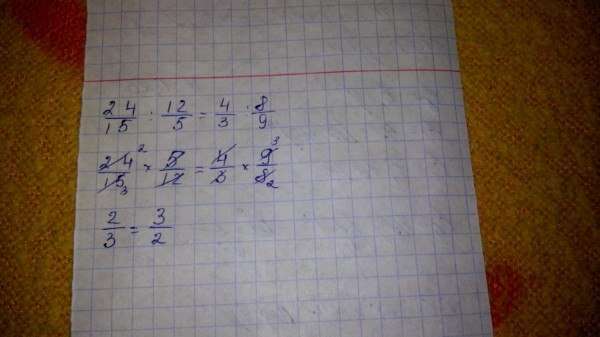 24/15 : 12/5 = 4/3 : 8/9
24/15 2 3 × 5/12 = 4/3 × 9/8 3 2
2/3 = 3/2